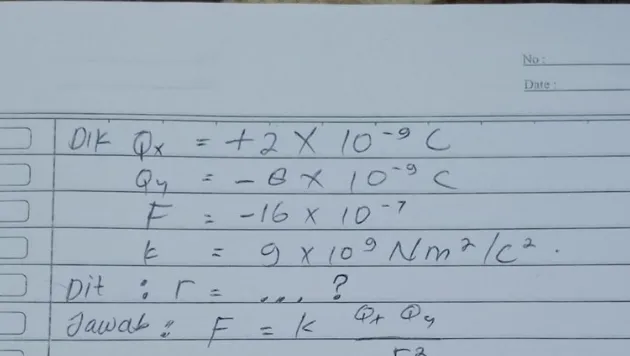 No :
Date :
Dik Qx = +2 × 10⁻⁹ C
Qy = -8 × 10⁻⁹ C
F = -16 × 10⁻⁷
k = 9 × 10⁹ Nm²/c² .
Dit : r = ... ?
Jawab : F = k Qx Qy
r²